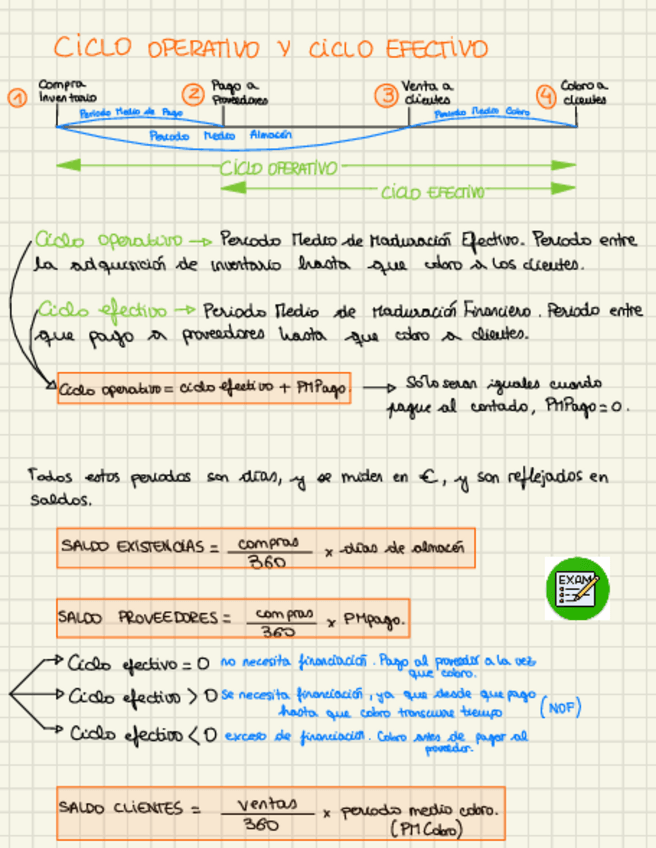 CICLO OPERATIVO Y CICLO EFECTIVO
① Compra Inventario
② Pago a Proveedores
③ Venta a clientes
④ Cobro a clientes
Periodo Medio de Pago
Periodo Medio Cobro
Periodo Medio Almacén
CICLO OPERATIVO
CICLO EFECTIVO
Ciclo operativo → Periodo Medio de Maduración Efectivo. Periodo entre
la adquisición de inventario hasta que cobro a los clientes.
Ciclo efectivo → Periodo Medio de Maduración Financiero. Periodo entre
que pago a proveedores hasta que cobro a clientes.
Ciclo operativo = ciclo efectivo + PMPago. → Sólo seran iguales cuando
pague al contado, PMPago = 0.
Todos estos periodos son días, y se miden en €, y son reflejados en
saldos.
SALDO EXISTENCIAS = compras / 360 x días de almacén
EXAM
SALDO PROVEEDORES = compras / 360 x PMpago.
Ciclo efectivo = 0 no necesita financiación. Pago al proveedor a la vez
que cobro.
Ciclo efectivo > 0 se necesita financiación, ya que desde que pago
hasta que cobro transcurre tiempo (NOF)
Ciclo efectivo < 0 exceso de financiación. Cobro antes de pagar al
proveedor.
SALDO CLIENTES = ventas / 360 x periodo medio cobro.
(PMCobro)